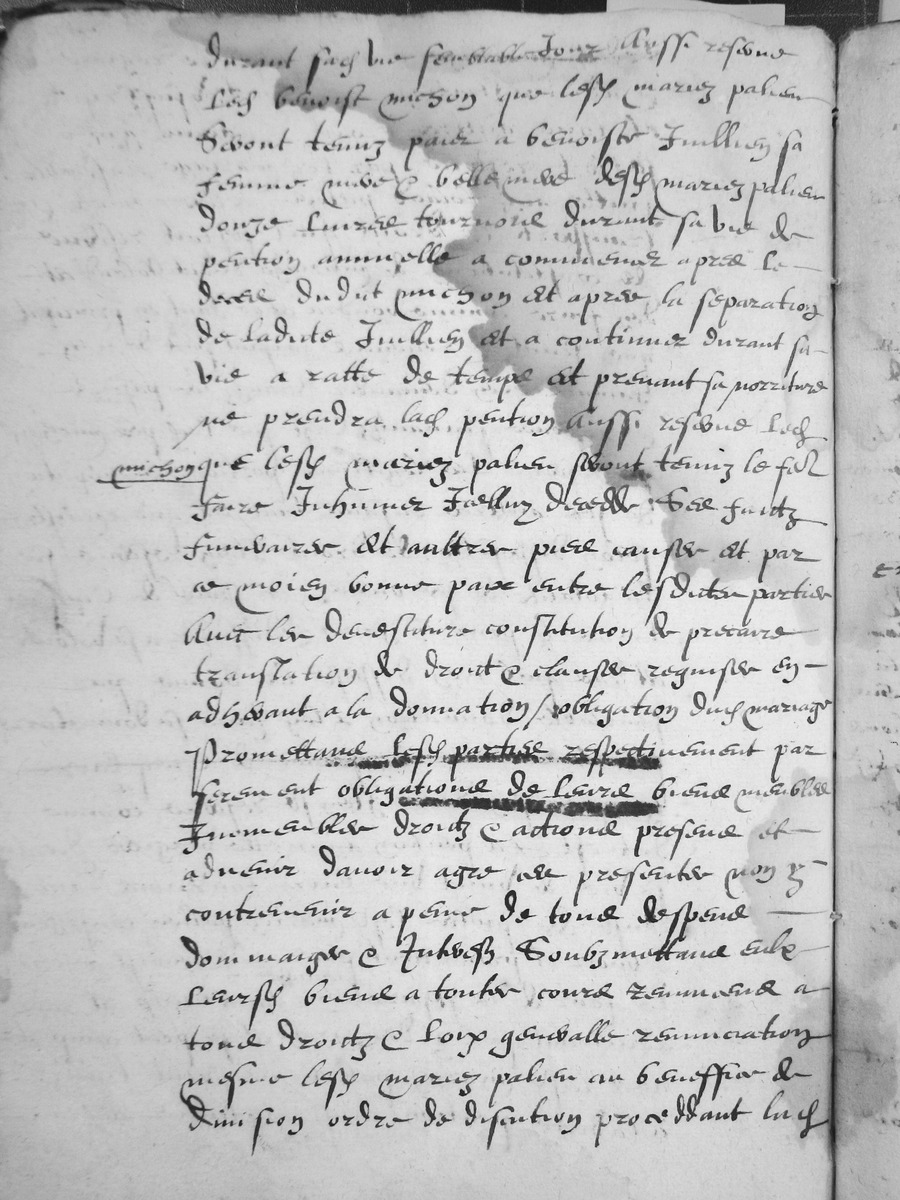 durant sad vie semblable Jour Aussi reserve
Led benoist michon que lesd mariez palien
Seront tenuz paier a benoiste Juillien sa
femme mere & belle mere desd mariez palien
douze Livres tournois durant sa vie de
pention annuelle a commencer apres le
deces dudit michon et apres la separation
de ladicte Juillien et a continuer durant sa
vie a ratte de temps et prenant sa norriture
ne prendra lad pention Aussi reserve led
michon que lesd mariez palien seront tenuz le
faire Inhumer Icelluy decedde Ses faictz
funeraires et aultres pies causes et par
ce moien bonne paix entre lesdictes parties
Avec les devestiture constitution de precaire
translation de droict & clauses requises en
adherant a la donnation / obligation dud mariage
Promettans lesd parties respectivement par
serement obligations de leurs biens meubles
Inmeubles droictz & actions presens et
advenir davoir agre ces presentes non y
contrevenir a peine de tous despens
dommaiges & Interestz Soubzmettans eulx
leursd biens a toutes cours renuncans a
tous droictz & Loix generalle renunciation
mesme lesd mariez palien au beneffice de
division ordre de discution proceddant lad